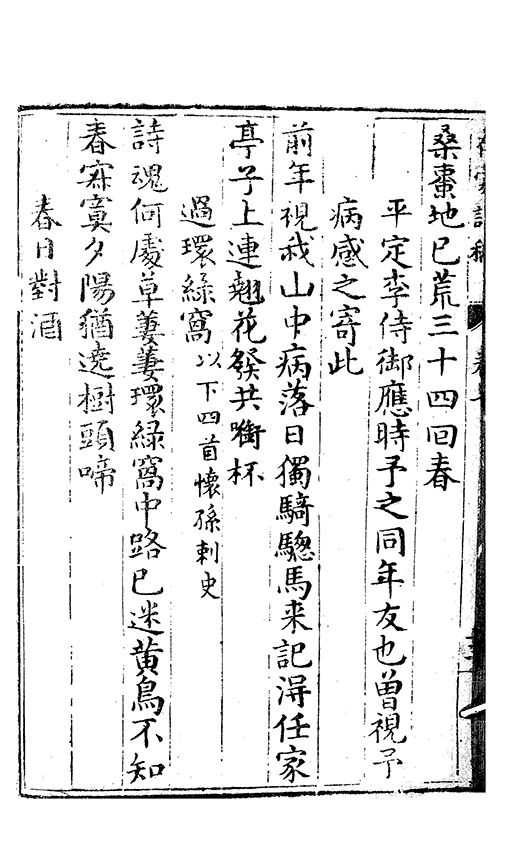 桑棗地已荒三十四回春
平定李侍御應時予之同年友也曾視予
病感之寄此
前年視我山中病落日獨騎驄馬来記得任家
亭子上連翹花發共銜杯
過環綠窩以下四首懷孫刺史
詩魂何處草萋萋環緑窩中路已迷黄鳥不知
春寂寞夕陽猶遶樹頭啼
春日對酒